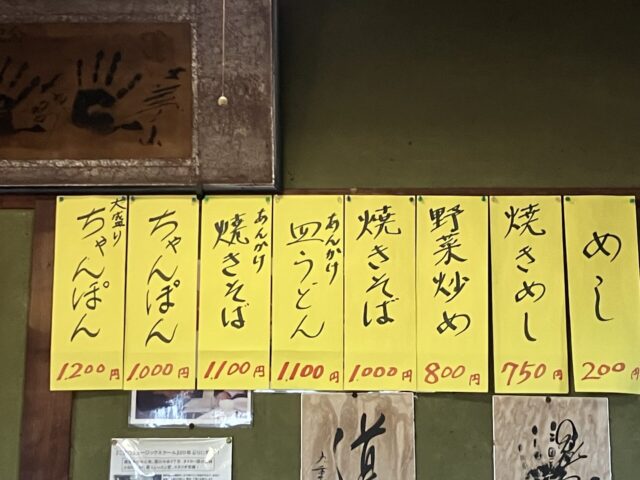 めし
200円
焼きめし
750円
野菜炒め
800円
焼きそば
1.000円
あんかけ
皿うどん
1.100円
あんかけ
焼きそば
1.100円
ちゃんぽん
1.000円
大盛り
ちゃんぽん
1.200円
道